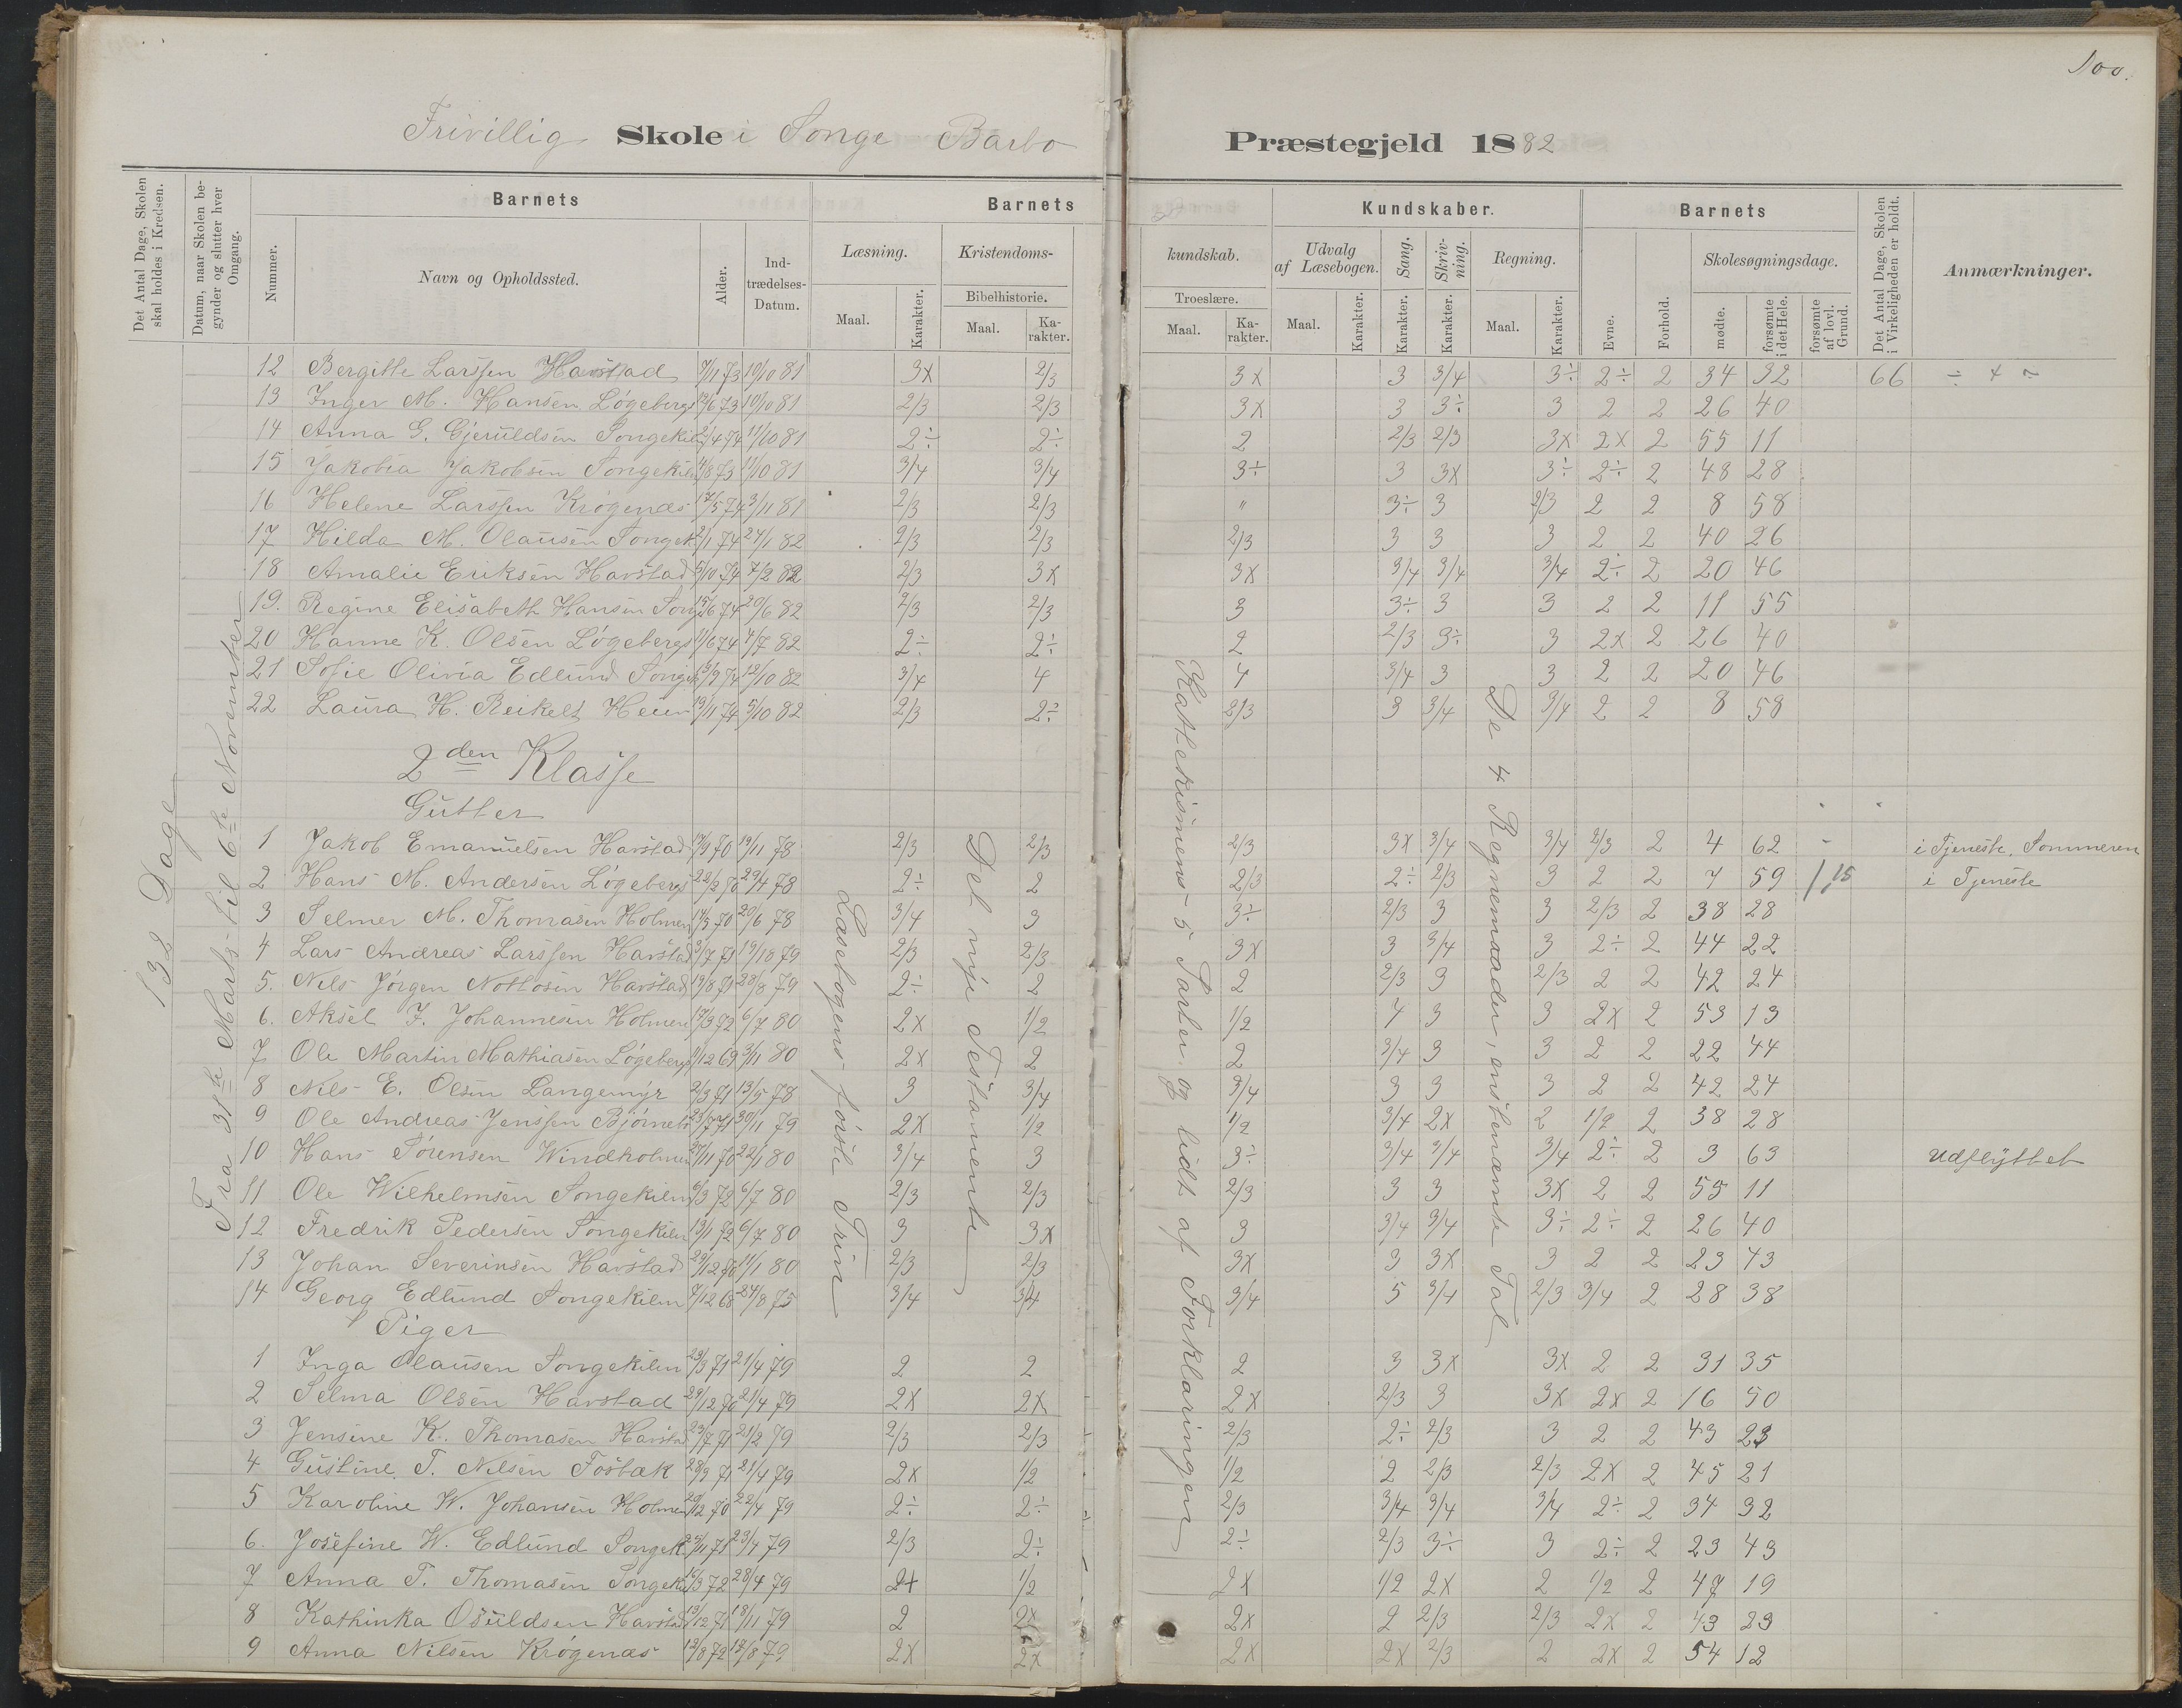 100.
Frivillig Skole i Songe Barbo Præstegjeld 1882
Det Antal Dage, Skolen skal holdes i Kredsen.
Datum, naar Skolen begynder og slutter hver Omgang.
Barnets
Nummer.
Navn og Opholdssted.
Alder.
Indtrædelses-Datum.
Barnets
Læsning.
Maal.
Karakter.
Kristendoms-
Bibelhistorie.
Maal.
Karakter.
kundskab.
Troeslære.
Maal.
Karakter.
Kundskaber.
Udvalg af Læsebogen.
Maal.
Karakter.
Sang.
Karakter.
Skrivning.
Karakter.
Regning.
Maal.
Karakter.
Barnets
Evne.
Forhold.
Skolesøgningsdage.
mødte.
forsømte i det Hele.
forsømte af lovl. Grund.
Det Antal Dage, Skolen i Virkeligheden er holdt.
Anmærkninger.
132 Dage
Fra 31te Marts til 6te November
12 Bergitte Larssen Havstad 10/10 81 3x 2/3 3x 3 3/4 3÷ 2÷ 2 34 32 66
13 Inger M. Hansen Løgeberg 10/10 81 2/3 2/3 3x 3 3÷ 3 2 2 26 40
14 Anna G. Gjeruldsen Songekil 11/10 81 2÷ 2÷ 2 2/3 2/3 3x 2x 2 55 11
15 Jakobia Jakobsen Songekilen 11/10 81 3/4 3/4 3÷ 3 3x 3÷ 2÷ 2 48 28
16 Helene Larssen Krøgenes 17/5 74 3/11 81 2/3 2/3 " 3÷ 3 2/3 2 2 8 58
17 Hilda M. Olausen Songek. 2/1 74 24/1 82 2/3 2/3 2/3 3 3 3 2 2 40 26
18 Amalie Eriksen Havstad 7/2 82 2/3 3x 3x 3/4 3/4 3/4 2÷ 2 20 46
19. Regine Elisabeth Hansen Song 15/6 74 20/6 82 2/3 2/3 3 3÷ 3 3 2 2 11 55
20 Hanne K. Olsen Løgeberg 11/6 74 4/7 82 2÷ 2÷ 2 2/3 3÷ 3 2x 2 26 40
21 Sofie Olivia Edlund Songek 12/10 82 3/4 4 4 3/4 3 3 2 2 20 46
22 Laura H. Reikelt Heien 19/11 74 5/10 82 2/3 2÷ 2/3 3 3/4 3/4 2 2 8 58
2den Klasse
Gutter
Læsebogens første Trin
Det nye Testamente
Kathekismens 5 Parter og lidt af Forklaringen
De 4 Regnemaader, enstenævnte Tal
1 Jakob Emanuelsen Havstad 19/11 78 2/3 2/3 2/3 3x 3/4 3/4 2/3 2 4 62 - i Tjeneste, Sommeren
2 Hans M. Andersen Løgeberg 22/2 70 29/4 78 2÷ 2 2/3 2÷ 2/3 3 2 2 7 59 i Tjeneste
3 Selmer M. Thomasen Holmen 20/6 78 3/4 3 3÷ 2/3 3 3 2/3 2 38 28
4 Lars Andreas Larssen Havstad 19/10 79 2/3 2/3 3x 3 3/4 3 2÷ 2 44 22
5. Nils Jørgen Nottosen Havstad 19/8 71 28/8 79 2÷ 2 2 2/3 3 2/3 2 2 42 24
6. Aksel F. Johannesen Holmen 6/7 80 2x 1/2 1/2 4 3 3 2x 2 53 13
7 Ole Martin Mathiasen Løgeberg 3/11 80 2x 2 2 3/4 3 3 2 2 22 44
8 Nils E. Olsen Langemyr 2/3 71 13/5 78 3 3/4 3/4 3 3 3 2 2 42 24
9 Ole Andreas Jenssen Bjørneb 30/1 79 2x 1/2 1/2 3/4 2x 2 1/2 2 38 28
10 Hans Sørensen Windholmen 22/1 80 3/4 3 3÷ 3/4 3/4 3/4 2÷ 2 3 63 Udflyttet
11 Ole Wilhelmsen Songekilen 6/3 72 6/7 80 2/3 2/3 2/3 3 3 3x 2 2 55 11
12 Fredrik Pedersen Songekilen 13/1 72 6/7 80 3 3x 3 3/4 3/4 3÷ 2÷ 2 26 40
13 Johan Severinsen Havstad 29/12 70 11/1 80 2/3 2/3 3x 3 3x 3 2 2 23 43
14 Georg Edlund Songekilen 24/8 75 3/4 3/4 3/4 5 3/4 2/3 3/4 2 28 38
Piger
1 Inga Olausen Songekilen 23/3 71 21/4 79 2 2 2 3 3x 3x 2 2 31 35
2 Selma Olsen Havstad 29/12 70 21/4 79 2x 2x 2x 2/3 3 3x 2x 2 16 50
3 Jensine K. Thomasen Havstad 23/7 71 21/2 79 2/3 2/3 2/3 2÷ 2/3 3 2 2 43 23
4 Gustine T. Nilsen Fosbæk 28/9 71 21/4 79 2x 1/2 1/2 2 2/3 2/3 2x 2 45 21
5 Karoline W. Johansen Holmen 22/4 79 2÷ 2÷ 2/3 3/4 3/4 3/4 2÷ 2 34 32
6. Josefine W. Edlund Songek. 25/11 71 23/4 79 2/3 2÷ 2÷ 2/3 3÷ 3 2÷ 2 23 43
7 Anna T. Thomasen Songekil 16/3 72 28/4 79 2+ 1/2 2x 1/2 2x 2 1/2 2 47 19
8 Kathinka Osuldsen Havstad 13/12 71 18/11 79 2 2x 2x 2 2/3 2/3 2x 2 43 23
9 Anna Nilsen Krøgenæs 12/8 72 19/8 79 2x 2x 2x 2x 2/3 2 2x 2 54 12